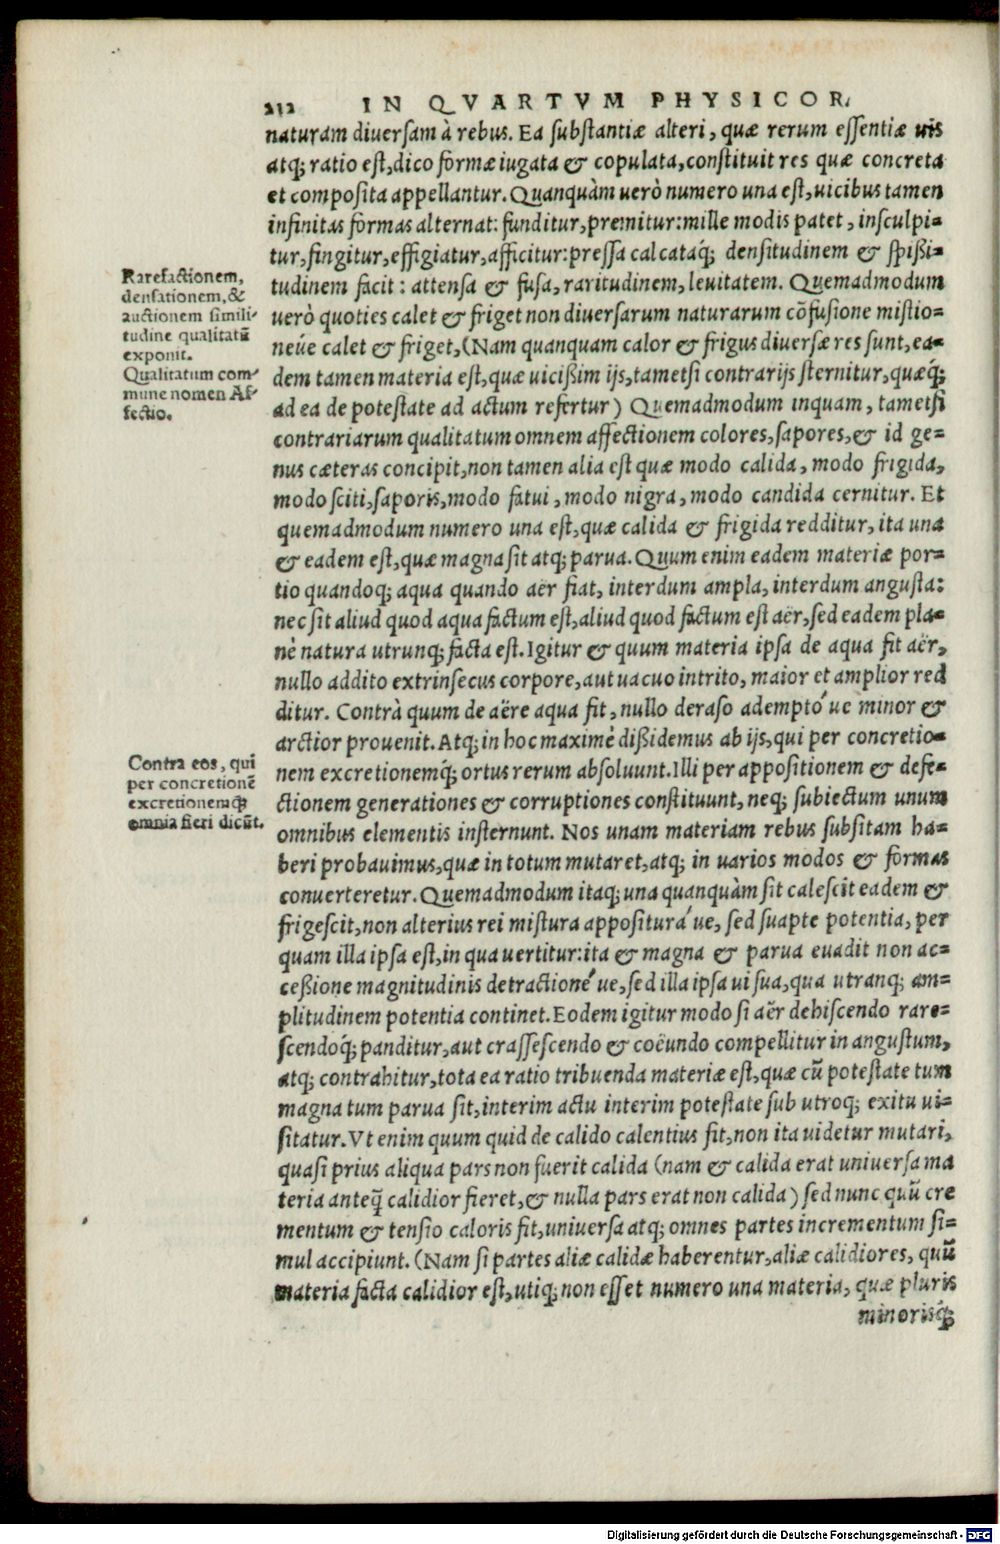 212 IN QVARTVM PHYSICOR.
naturam diuersam à rebus. Ea substantiæ alteri, quæ rerum essentiæ uis
atq; ratio est, dico formæ iugata & copulata, constituit res quæ concreta
et composita appellantur. Quanquàm uerò numero una est, uicibus tamen
infinitas formas alternat: funditur, premitur: mille modis patet, insculpi=
tur, fingitur, effigiatur, afficitur: pressa calcataq́; densitudinem & spißi=
tudinem facit: attensa & fusa, raritudinem, leuitatem. Quemadmodum
uerò quoties calet & friget non diuersarum naturarum cõfusione mistio=
neúe calet & friget, (Nam quanquam calor & frigus diuersæ res sunt, ea=
dem tamen materia est, quæ uicißim ijs, tametsi contrarijs sternitur, quæq́;
ad ea de potestate ad actum refertur) Quemadmodum inquam, tametsi
contrariarum qualitatum omnem affectionem colores, sapores, & id ge=
nus cæteras concipit, non tamen alia est quæ modo calida, modo frigida,
modo sciti, saporis, modo fatui, modo nigra, modo candida cernitur. Et
quemadmodum numero una est, quæ calida & frigida redditur, ita una
& eadem est, quæ magna sit atq; parua. Quum enim eadem materiæ por=
tio quandoq; aqua quando aër fiat, interdum ampla, interdum angusta:
nec sit aliud quod aqua factum est, aliud quod factum est aër, sed eadem pla=
nè natura utrunq; facta est. Igitur & quum materia ipsa de aqua fit aër,
nullo addito extrinsecus corpore, aut uacuo intrito, maior et amplior red
ditur. Contrà quum de aëre aqua fit, nullo deraso ademptó ue minor &
arctior prouenit. Atq; in hoc maximè dißidemus ab ijs, qui per concretio=
nem excretionemq́; ortus rerum absoluunt. Illi per appositionem & defe=
ctionem generationes & corruptiones constituunt, neq; subiectum unum
omnibus elementis insternunt. Nos unam materiam rebus subsitam ha=
beri probauimus, quæ in totum mutaret, atq; in uarios modos & formas
conuerteretur. Quemadmodum itaq; una quanquàm sit calescit eadem &
frigescit, non alterius rei mistura appositurá ue, sed suapte potentia, per
quam illa ipsa est, in qua uertitur: ita & magna & parua euadit non ac=
ceßione magnitudinis detractioné ue, sed illa ipsa ui sua, qua utranq; am=
plitudinem potentia continet. Eodem igitur modo si aër dehiscendo rare=
scendoq́; panditur, aut crassescendo & coëundo compellitur in angustum,
atq; contrahitur, tota ea ratio tribuenda materiæ est, quæ cũ potestate tum
magna tum parua sit, interim actu interim potestate sub utroq; exitu ui=
sitatur. Vt enim quum quid de calido calentius fit, non ita uidetur mutari,
quasi prius aliqua pars non fuerit calida (nam & calida erat uniuersa ma
teria anteq̃ calidior fieret, & nulla pars erat non calida) sed nunc quũ cre
mentum & tensio caloris fit, uniuersa atq; omnes partes incrementum si=
mul accipiunt. (Nam si partes aliæ calidæ haberentur, aliæ calidiores, quũ
materia facta calidior est, utiq; non esset numero una materia, quæ pluris
minorisq́;
Rarefactionem,
densationem, &
auctionem simili-
tudine qualitatũ
exponit.
Qualitatum com-
mune nomen Af-
fectio.
Contra eos, qui
per concretionẽ
excretionemq́;
omnia fieri dicũt.
Digitalisierung gefördert durch die Deutsche Forschungsgemeinschaft - DFG